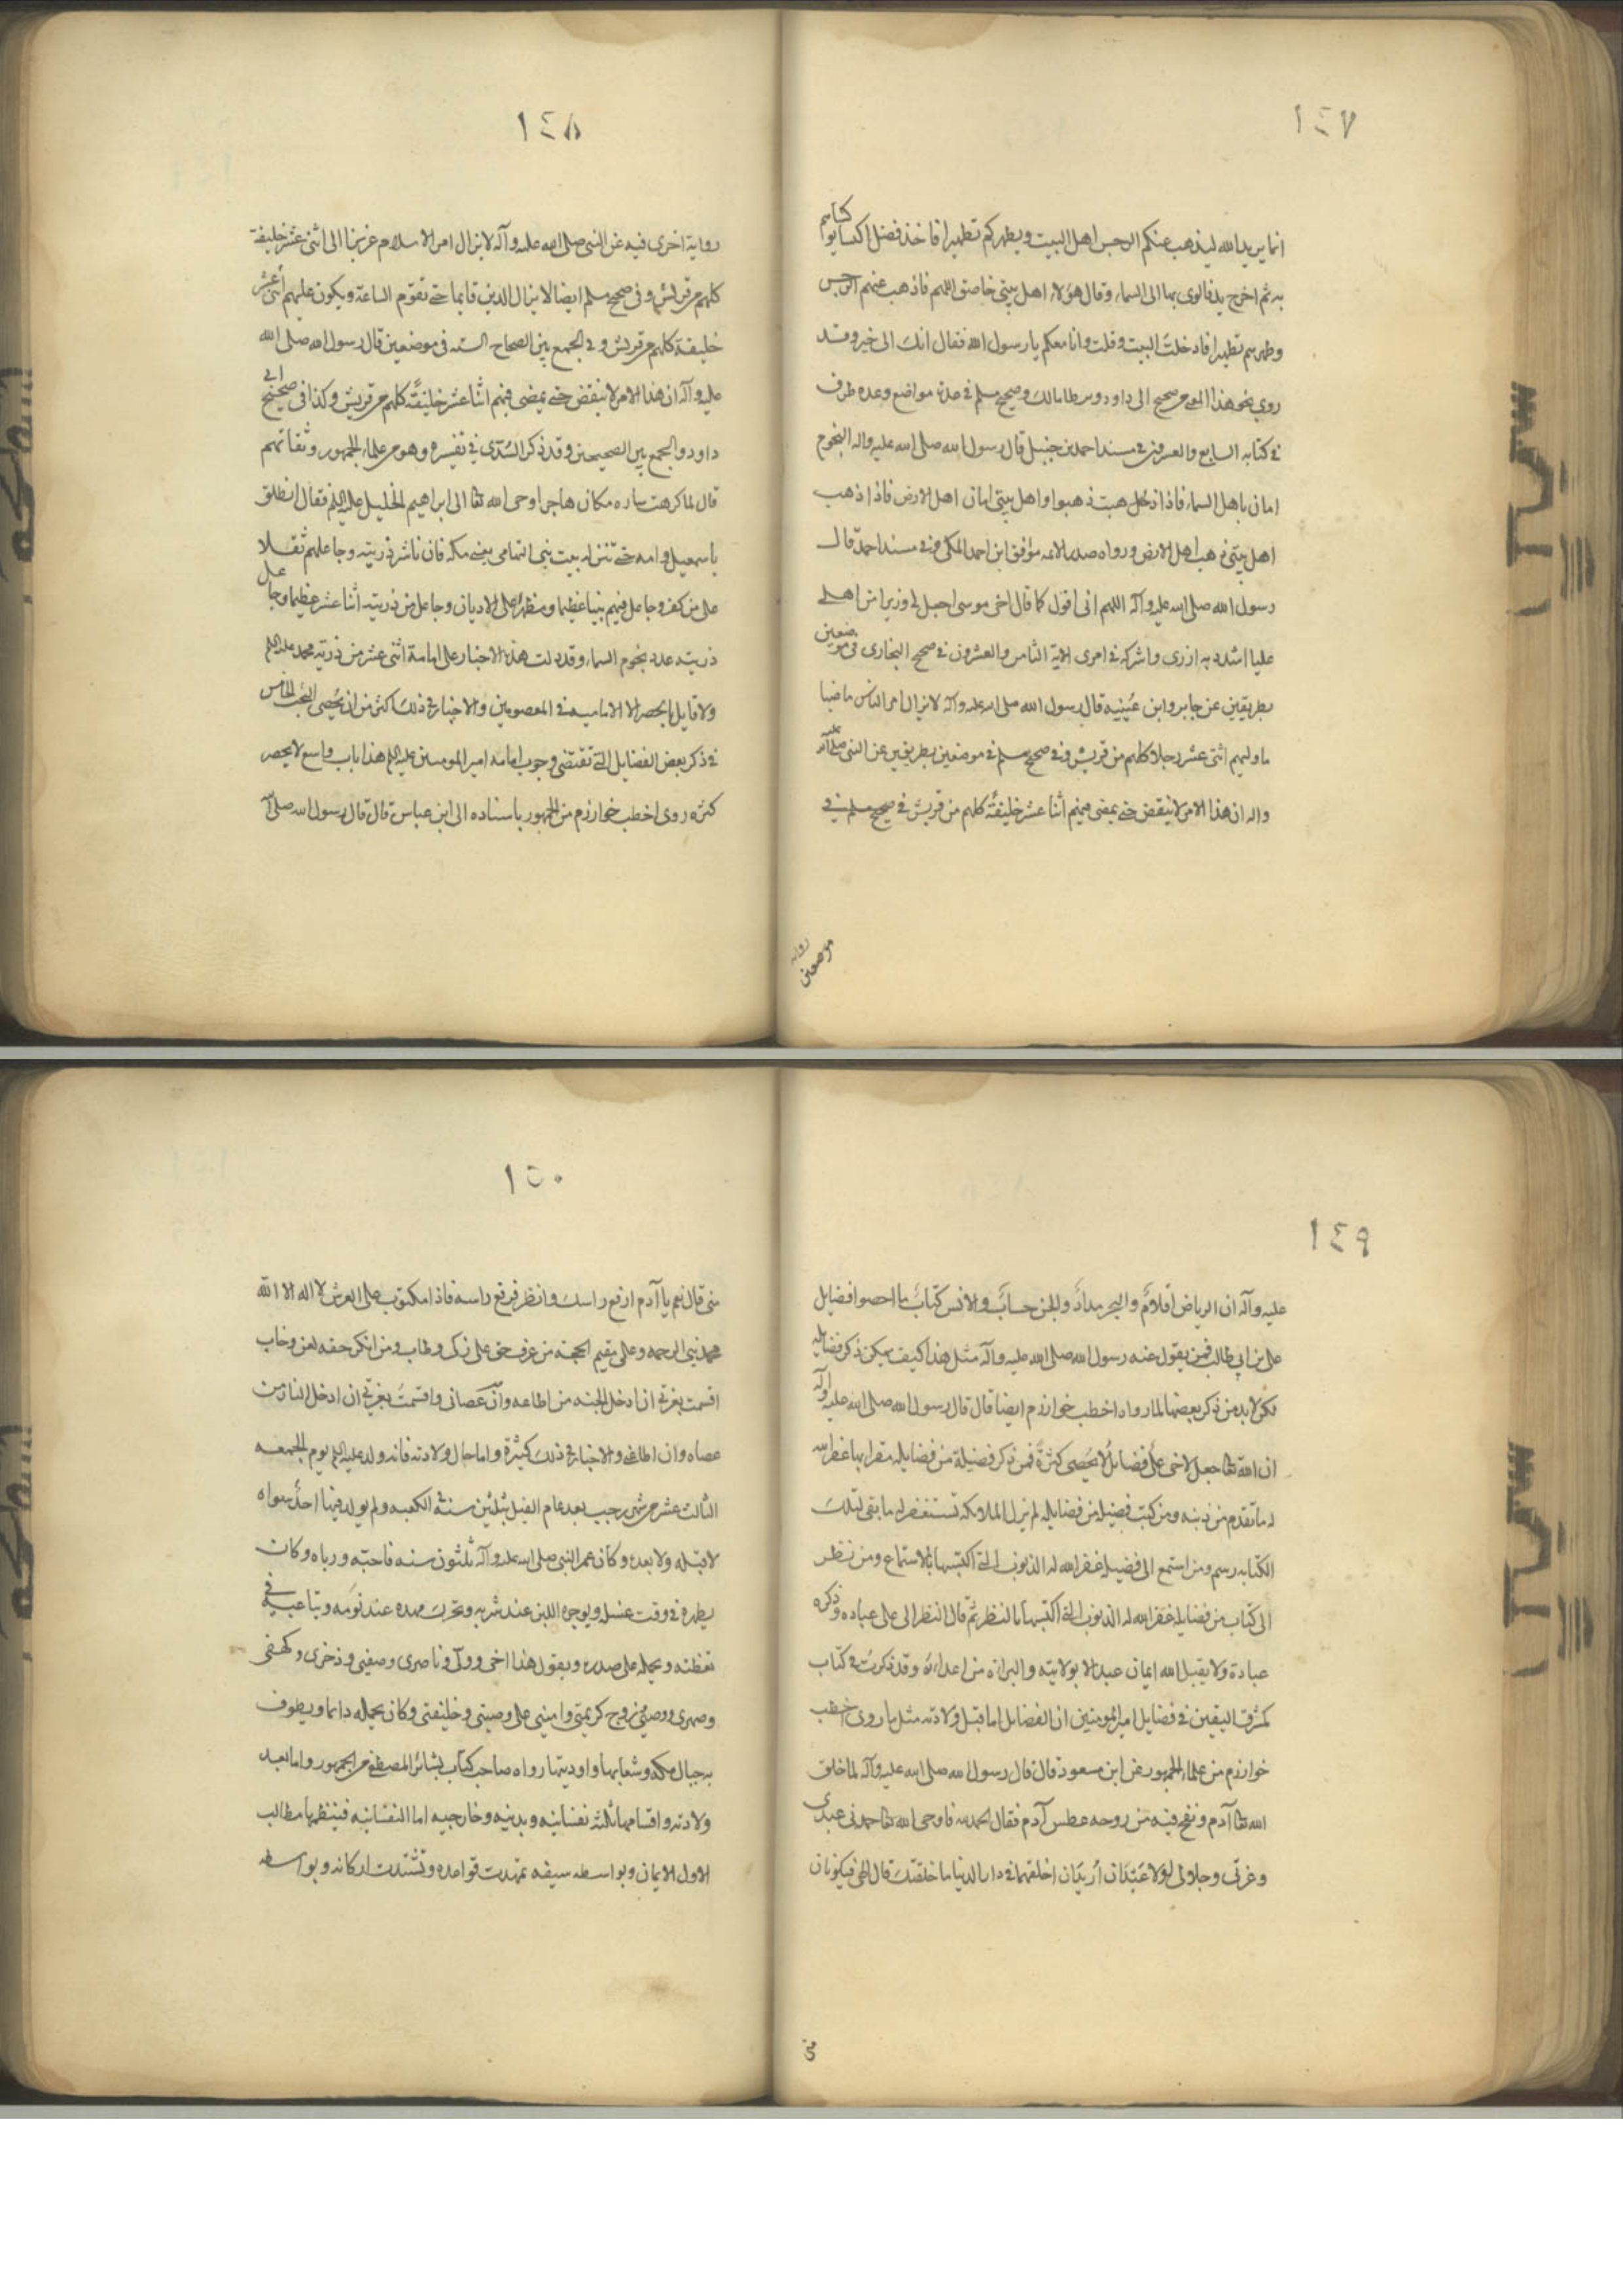 ١٤٧
انما يريد الله ليذهب عنكم الرجس اهل البيت ويطهركم تطهيرا فاخذ فضل الكساء وكساهم
به ثم اخرج يده فالوى بها الى السماء وقال هؤلاء اهل بيتي خاصتي اللهم فاذهب عنهم الرجس
وطهرهم تطهيرا فادخلت البيت وقلت وانا معكم يا رسول الله فقال انك الى خير وقد
روي نحو هذا المعنى من صحيح ابي داود وموطا مالك وصحيح مسلم في عدة مواضع وعدة طرق
في كتابه السابع والعشرون في مسند احمد بن حنبل قال رسول الله صلى الله عليه واله النجوم
امان لاهل السماء فاذا ذهبت ذهبوا واهل بيتي امان اهل الارض فاذا ذهب
اهل بيتي ذهب اهل الارض ورواه صدر الائمه موفق ابن احمد المكي وفي مسند احمد قال
رسول الله صلى الله عليه وآله اللهم اني اقول كما قال اخي موسى اجعل لي وزيرا من اهلي
عليا اشدد به ازري واشركه في امري الاية الثامن والعشرون في صحيح البخاري في موضعين
بطريقين عن جابر وابن عيينه قال رسول الله صلى الله عليه وآله لا يزال امر الناس ماضيا
ما وليهم اثني عشر رجلا كلهم من قريش وفي صحيح مسلم في موضعين بطريقين عن النبي صلى الله عليه
واله ان هذا الامر لا ينقضي حتى يمضي فيهم اثنا عشر خليفة كلهم من قريش في صحيح مسلم في
موضعين
رواية
١٤٨
رواية اخرى فيه عن النبي صلى الله عليه وآله لا يزال امر الاسلام عزيزا الى اثني عشر خليفة
كلهم من قريش وفي صحيح مسلم ايضا لا يزال الدين قايما حتى تقوم الساعة ويكون عليهم اثني عشر
خليفة كلهم من قريش وفي الجمع بين الصحاح الستة في موضعين قال رسول الله صلى الله
عليه وآله ان هذا الامر لا ينقضي حتى يمضي فيهم اثنا عشر خليفة كلهم من قريش وكذا في صحيح ابي
داود والجمع بين الصحيحين وقد ذكر السدي في تفسيره وهو من علماء الجمهور وثقاتهم
قال لما كرهت ساره مكان هاجر اوحى الله تعا الى ابراهيم الخليل عليه السلم فقال انطلق
باسمعيل وامه حتى تنزله بيت نبي التهامي يعني مكه فاني ناشر ذريته وجاعلهم ثقلا
على من كفر وجاعل فيهم نبيا عظيما ومظهره على الاديان وجاعل من ذريته اثنا عشر عظيما وجاعل
ذريته عدد نجوم السماء وقد دلت هذه الاخبار على امامة اثني عشر من ذرية محمد عليه السلم
ولا قايل بالحصر الا الامامية في المعصومين والاخبار في ذلك اكثر من ان يحصى البحث الخامس
في ذكر بعض الفضايل التي تقتضي وجوب امامه امير المؤمنين عليه السلم هذا باب واسع لا يحصر
كثره روى اخطب خوارزم من الجمهور باسناده الى ابن عباس قال قال رسول الله صلى الله
١٤٩
عليه وآله ان الرياض اقلام والبحر مداد والجن حساب والانس كتاب ما احصوا فضايل
علي بن ابي طالب فمن يقول عنه رسول الله صلى الله عليه وآله مثل هذا كيف يمكن ذكر فضايله
لكن لا بد من ذكر بعضها لما رواه اخطب خوارزم ايضا قال قال رسول الله صلى الله عليه وآله
ان الله تعا جعل لاخي علي فضايل لا يحصى كثرة فمن ذكر فضيلة من فضايله مقرا بها غفر الله
له ما تقدم من ذنبه ومن كتب فضيلة من فضايله لم يزل الملائكه تستغفر له ما بقي لتلك
الكتابه رسم ومن استمع الى فضيله غفر الله له الذنوب التي اكتسبها بالاستماع ومن نظر
الى كتاب من فضايله غفر الله له الذنوب التي اكتسبها بالنظر ثم قال النظر الى علي عباده وذكره
عبادة ولا يقبل الله ايمان عبد الا بولايته والبراءة من اعدائه وقد ذكرت في كتاب
كشف اليقين في فضايل امير المؤمنين ان الفضايل اما قبل ولادته مثل ما روى اخطب
خوارزم من علماء الجمهور عن ابن مسعود قال قال رسول الله صلى الله عليه وآله لما خلق
الله تعا آدم ونفخ فيه من روحه عطس آدم فقال الحمد لله فاوحى الله تعا حمدني عبدي
وعزتي وجلالي لولا عبدان اريدان اخلقهما في دار الدنيا ما خلقتك قال الهي فيكونان
مني
١٥٠
مني قال نعم يا آدم ارفع راسك وانظر فرفع راسه فاذا مكتوب على العرش لا اله الا الله
محمد نبي الرحمه وعلي مقيم الحجة من عرف حق علي زكى وطاب ومن انكر حقه لعن وخاب
اقسمت بعزتي ان ادخل الجنه من اطاعه وان عصاني واقسمت بعزتي ان ادخل النار من
عصاه وان اطاعني والاخبار في ذلك كثيرة واما حال ولادته فانه ولد عليه السلم يوم الجمعه
الثالث عشر من شهر رجب بعد عام الفيل بثلثين سنة في الكعبه ولم يولد فيها احد سواه
لا قبله ولا بعده وكان عمر النبي صلى الله عليه وآله ثلثون سنه فاحبه ورباه وكان
يطهره في وقت غسله ويوجره اللبن عند شربه ويحرك مهده عند نومه ويناغيه في
يقظته ويحمله على صدره ويقول هذا اخي وولي وناصري وصفيي وذخري وكهفي
وصهري ووصيي وزوج كريمتي واميني على وصيتي وخليفتي وكان يحمله دائما ويطوف
به جبال مكه وشعابها واوديتها رواه صاحب كتاب بشائر المصطفى من الجمهور واما بعد
ولادته واقسامها ثلثة نفسانيه وبدنيه وخارجيه اما النفسانيه فينظمها مطالب
الاول الايمان وبواسطه سيفه تمهدت قواعده وتشيدت اركانه وبواسطه